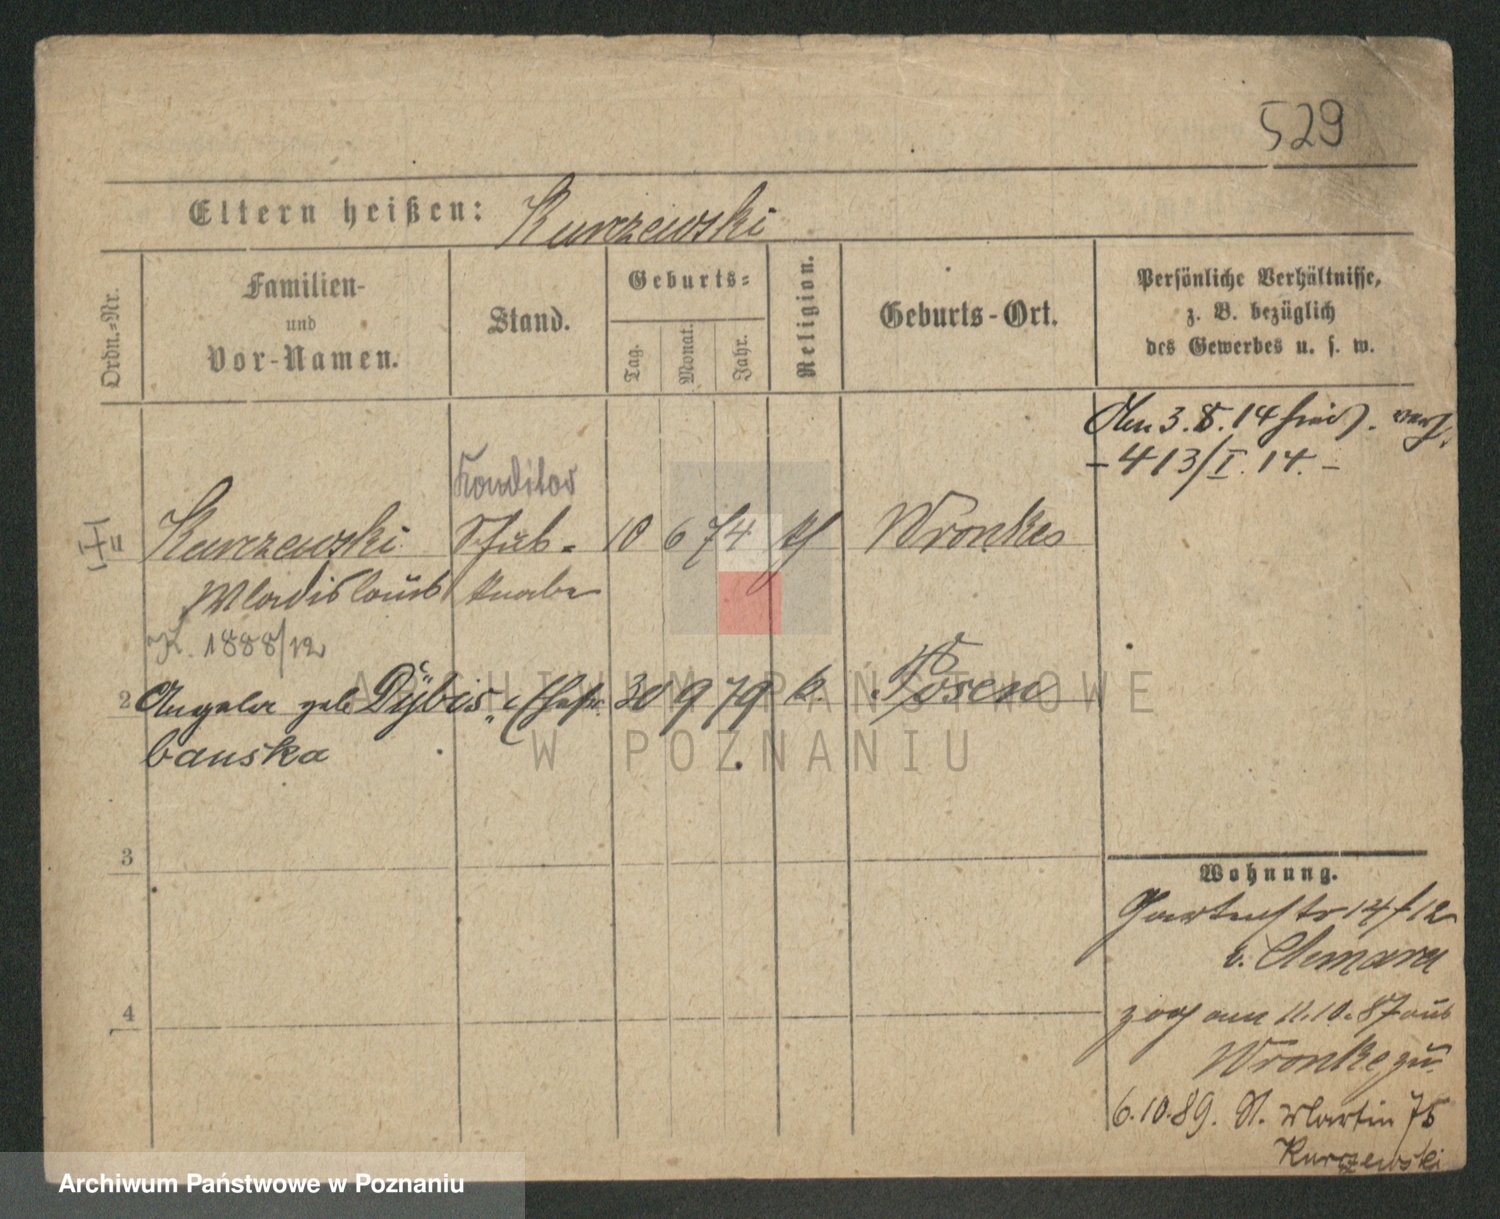 529
Eltern heißen: Kurczewski
Ordn.-Nr.
Familien-
und
Vor-Namen.
Stand.
Geburts-
Tag.
Monat.
Jahr.
Religion.
Geburts-Ort.
Persönliche Verhältnisse,
z. B. bezüglich
des Gewerbes u. s. w.
3. 8. 14
– 413/I. 14. –
Konditor
Kurczewski 10 6 74 kh Wronke
Wladislaus knabe
K. 1888/12
2 Angela geb. Dÿbis- Ehefr. 30 9 79 k. Posen
banska
3
4
Wohnung.
Gartenstr 14 / 12
b.
zog am 11.10.87 aus
Wronke zu
6.10.89. St. Martin 75
Kurczewski
ARCHIWUM PAŃSTWOWE
W POZNANIU
Archiwum Państwowe w Poznaniu